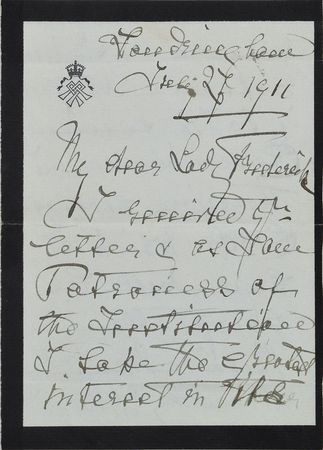 Sandringham
27 1911
My dear Lady Frederick
I received yr
letter & as I am
Patroness of
the Institution
I take the greatest
interest in